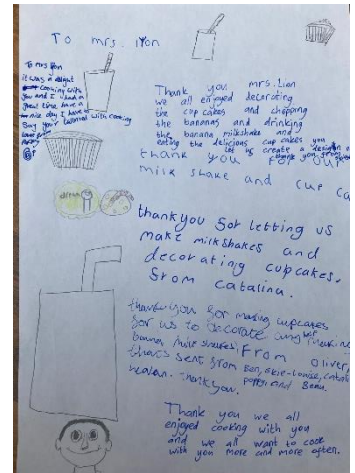 To mrs. lion
To mrs lion
it was a delight
cooking with
you and I had a
great time have a
nice day I have to
say your talented with cooking
Thank you mrs. Lion
we all enjoyed decorating
the cup cakes and chopping
the bananas and drinking
the banana milkshake and
eating the delicious cup cakes you
let us create a design on
thank you for our
milk shake and cup ca
thankyou for letting us
make milkshakes and
decorating cupcakes.
from catalina.
thank you for making cupcakes
for us to decorate and making
banana milk shakes! From oliver,
thats sent from Ben,
thankyou. and Beau.
Thank you we all
enjoyed cooking with you
and we all want to cook
with you more and more often.